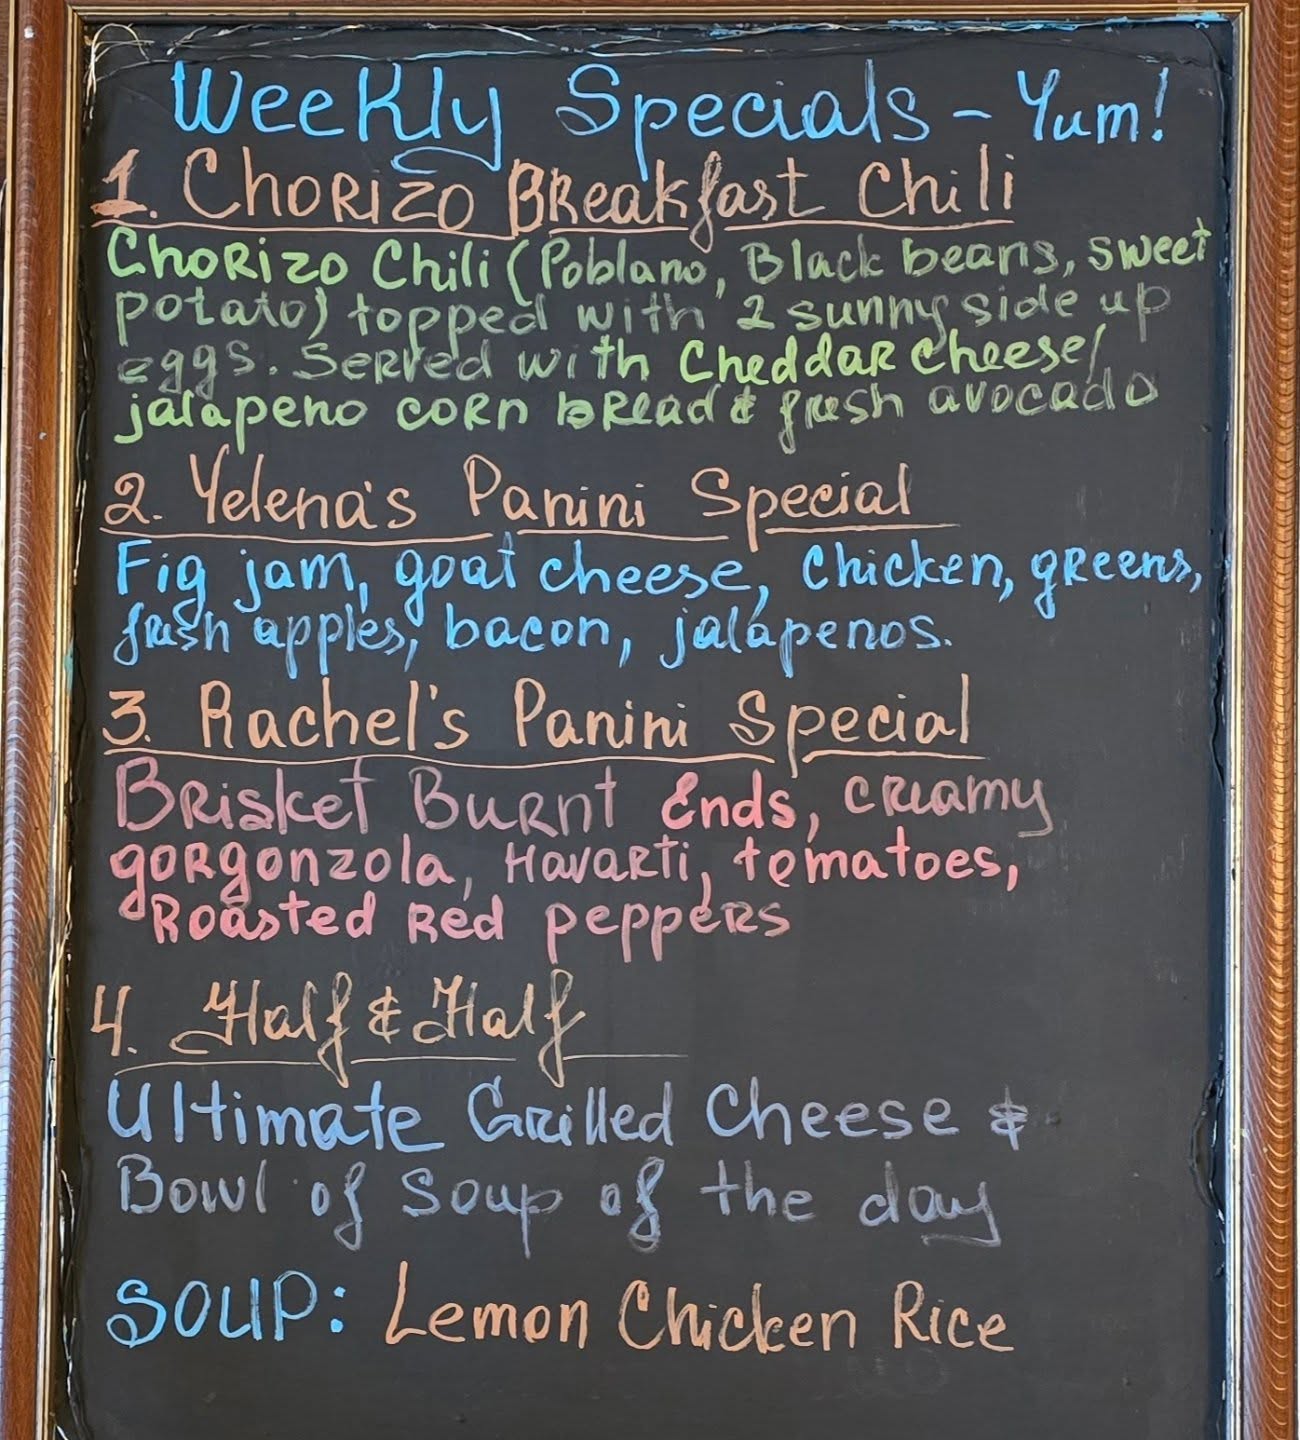 Weekly Specials - Yum!
1. Chorizo Breakfast Chili
Chorizo Chili (Poblano, Black beans, sweet
potato) topped with 2 sunny side up
eggs. Served with Cheddar cheese/
jalapeno corn bread & fresh avocado
2. Yelena's Panini Special
Fig jam, goat cheese, chicken, greens,
fresh apples, bacon, jalapenos.
3. Rachel's Panini Special
Brisket Burnt Ends, creamy
gorgonzola, Havarti, tomatoes,
Roasted Red peppers
4. Half & Half
Ultimate Grilled Cheese &
Bowl of Soup of the day
SOUP: Lemon Chicken Rice